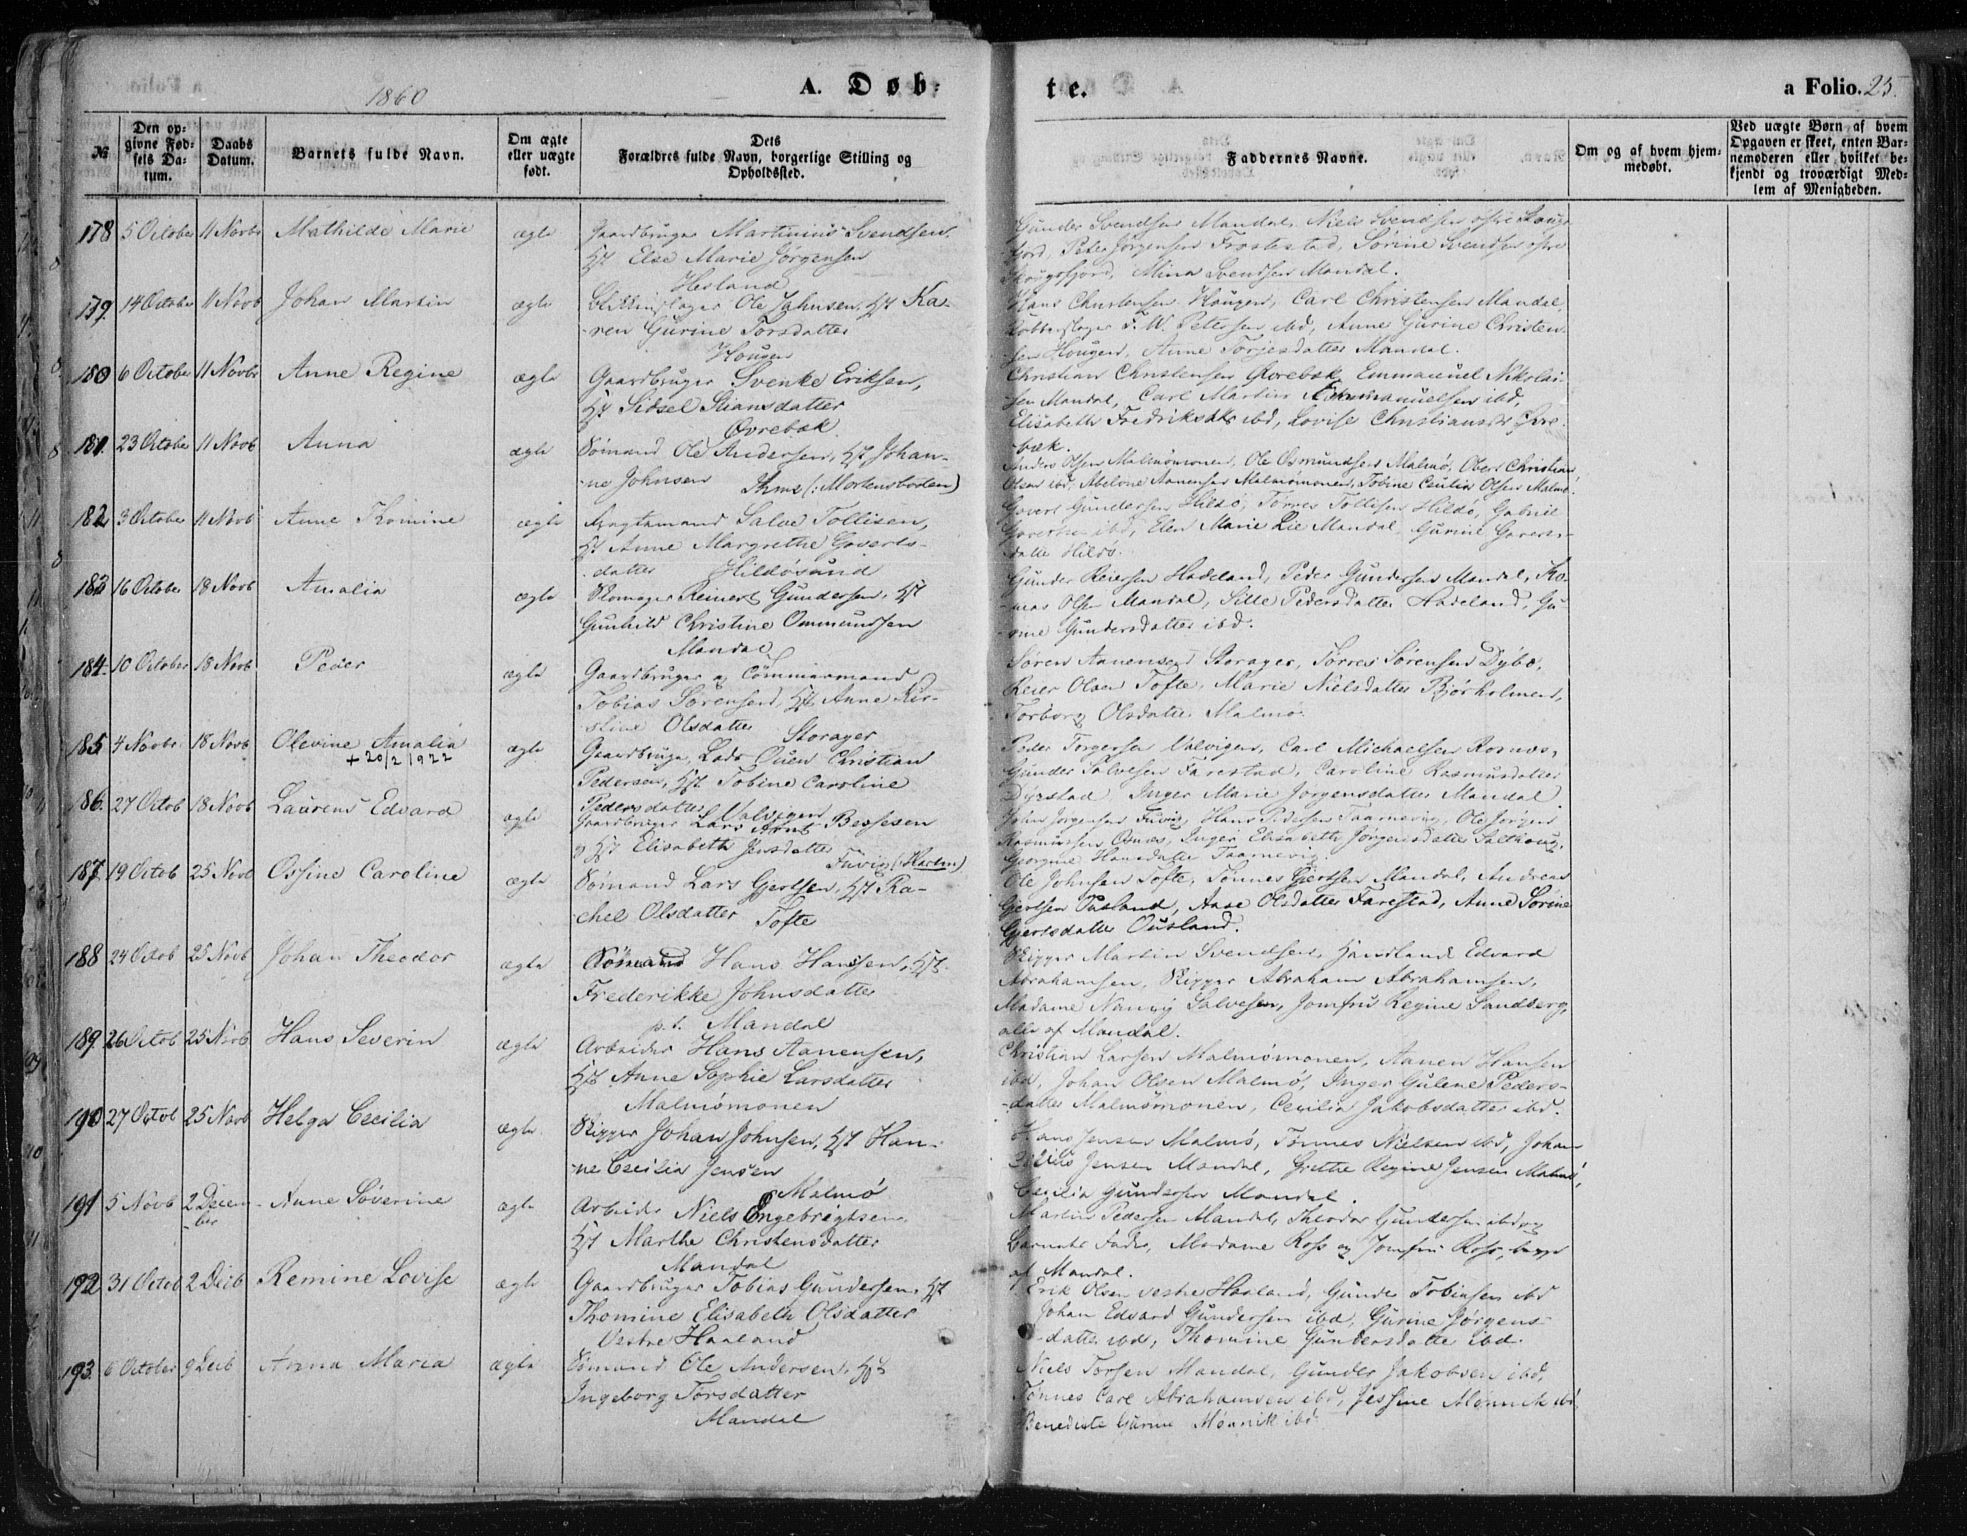 1860
A. Døb:
te.
a Folio. 25.
№
Den op-
givne Fød-
sels Da-
tum.
Daabs
Datum.
Barnets fulde Navn.
Om ægte
eller uægte
født.
Dets
Forældres fulde Navn, borgerlige Stilling og
Opholdssted.
Faddernes Navne.
Om og af hvem hjem-
medøbt.
Ved uægte Børn af hvem
Opgaven er skeet, enten Bar-
nemoderen eller hvilket be-
kjendt og troværdigt Med-
lem af Menigheden.
178 5 October 11 Novbr Mathilde Marie ægte Gaardbruger Martinius Svendsen,
Hst Else Marie Jørgensen
Hesland
Gunder Svendsen Mandal, Niels Svendsen
Peter Jørgensen Frostestad, Sørine Svendsen
Mina Svendsen Mandal.
179. 14 October 11 Novb Johan Martin ægte Ole Johnsen, Hst Ka-
-ren Gurine Torsdatter
Hougen
Hans Christensen Hougen, Carl Christensen Mandal,
F. W. Petersen ibd, Anne Gurine Christen-
sen Hougen, Anne Torjesdatter Mandal.
180 6 October 11 Novbr Anne Regine ægte Gaardbruger Svenke Eriksen,
Hst Sidsel Stiansdatter
Øvrebæk
Christian Christensen Øvrebæk, Emmanuel Nikolai-
sen Mandal, Carl Martin Emmanuelsen ibd,
Elisabeth Fredriksdtr ibd, Lovise Christiansdtr Øvre-
bæk.
181. 23 October 11 Novb Anna ægte Sømand Ole Andersen, Hst Johan-
-ne Johnsen Ihme (: Mortensboden)
Anders Olsen Malmømonen, Ole Osmundsen Malmø, Obert Christian
Olsen ibd, Abelone Aanensen Malmømonen, Tobine Cecilia Olsen Malmø.
182 3 October 11 Novb Anne Tomine ægte Salve Tollisen,
Hst Anne Margrethe Goverts-
datter Hildøsund
Govert Gundersen Hildø, Tørres Tollisen Hildø, Gabriel
Govertsen ibd, Elen Marie Lie Mandal, Gurine Goverts-
datter Hildø.
183 16 October 18 Novb Amalia ægte Skomager Reinert Gundersen, Hst
Gunhild Christine Ommundsen
Mandal
Gunder Reiersen Hadeland, Peder Gundersen Mandal, To-
-mas Olsen Mandal, Sille Pedersdatter Hadeland, Gu-
-rine Gundersdatter ibd.
184. 10 October 18 Novb Peder ægte Gaardbruger og Tømmermand
Tobias Sørensen, Hst Anne Kir-
stine Olsdatter Storager
Søren Aanensen Storager, Tørres Sørensen Dybø,
Reier Olsen Tofte, Marie Nielsdatter Bjørholmen,
Torborg Olsdatter Malmø.
185 4 Novbr. 18 Novb Olevine Amalia ægte Gaardbruger, Lods Ouen Christian
+ 20/2 1922
Pedersen, Hst Tobine Caroline
Pedersdatter Valvigen
Peder Torgersen Valvigen, Carl Michaelsen Rosnes,
Gunder Salvesen Farestad, Caroline Rasmusdatter
Dyrstad, Inger Marie Jørgensdatter Mandal
186. 27 Octob 18 Novb Laurens Edvard ægte Gaardbruger Lars Arnt Bessesen
og Hst Elisabeth Jensdatter
Fuvig (: Harkm)
John Jørgensen Fuvig, Hans Pedersen Taarnevig, Ole Jørgen
Rasmussen Osnes, Inger Elisabeth Jørgensdatter Salthoug,
Georgine Hansdatter Taarnevig.
187. 19 Octob 25 Novb Ossine Caroline ægte Sømand Lars Gjertsen, Hst Ra-
chel Olsdatter Tofte
Ole Johnsen Tofte, Tønnes Gjertsen Mandal, Andreas
Gjertsen Ousland, Aase Olsdatter Farestad, Anne Sørine
Gjertsdatter Ousland.
188 24 Octob 25 Novb Johan Theodor ægte Sømand Hans Hansen, Hst
Frederikke Johnsdatter
p.t. Mandal
Skipper Martin Svendsen, Edvard
Abrahamsen, Skipper Abraham Abrahamsen,
Madame Nanny Salvesen, Jomfru Regine Sandberg,
alle af Mandal.
189. 26 Octob 25 Novb Hans Severin ægte Arbeider Hans Aanensen,
Hst Anne Sophie Larsdatter
Malmømonen
Christian Larsen Malmømonen, Aanen Hansen
ibd, Johan Olsen Malmø, Inger Gulene Peders-
-datter Malmømonen, Cecilia Jakobsdatter ibd.
190 27 Octob 25 Novb Helga Cecilia ægte Skipper Johan Johnsen, Hst Han-
-ne Cecilia Jensen
Malmø
Hans Jensen Malmø, Tønnes Nielsen ibd, Johan
Jensen Mandal, Grethe Regine Jensen Malmø,
Cecilia Gundersen Mandal.
191 5 Novb 2 Decem-
-ber Anne Søverine ægte Arbeider Niels Engebrigtsen,
Hst Marthe Christensdatter
Mandal
Martin Pedersen Mandal, Theodor Gundersen ibd og
Barnets Fader, Madame Ross og Jomfru Ross, begge
af Mandal.
192 31 Octob 2 Decb Remine Lovise ægte Gaardbruger Tobias Gundersen, Hst
Thomine Elisabeth Olsdatter
Vestre Haaland
Erik Olsen vestre Haaland, Gunder Tobiasen ibd
Johan Edvard Gundersen ibd, Gurine Jørgens-
-datter ibd, Thomine Gundersdatter ibd.
193. 6 October 9 Decb Anna Maria ægte Sømand Ole Andersen, Hst
Ingeborg Torsdatter
Mandal
Niels Torsen Mandal, Gunder Jakobsen ibd,
Tønnes Carl Abrahamsen ibd, Jessine Mønnik ibd,
Benedicte Gurine Mønnik ibd